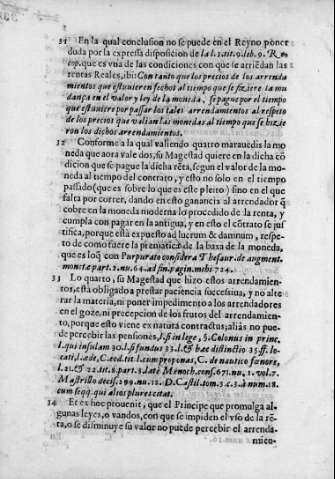 31 En la qual conclusion no se puede en el Reyno poner
duda por la expressa disposicion de la l.1.tit.9.lib.9. Re
cop. que es vna de las condiciones con que se arriẽdan las
rentas Reales, ibi: Con tanto que los precios de los arrenda
mientos que estuuieren fechos al tiempo que se fiziere ta mu
dança en el valor y ley de la moneda, se pague por el tiempo
que estauiere por passar los tales arrendamientos al respeto
de los precios que valian las monedas al tiempo que se hizie
ron los dichos arrendamientos.
32 Conforme a la qual valiendo quatro marauedis la mo
neda que aora vale dos, su Magestad quiere en la dicha cõ
dicion que se pague la dicha rẽta, segun el valor de la mo-
neda al tiempo del contrato, y esto no solo en el tiempo
passado (que es sobre lo que es este pleito) sino en el que
falta por correr, dando en esto ganancia al arrendador q̃
cobre en la moneda moderna lo procedido de la renta, y
cumpla con pagar en la antigua, y en esto el cõtrato se jus
tifica, porque està expuesto ad lucrum & damnum, respe-
to de como fuere la prematica de la baxa de la moneda,
que es loq̃ con Purpurato considera Thesaur. de augment.
monetæ part.2.nu.64. ad fin. pagin. mihi 724.
33 Lo quarto, su Magestad que hizo estos arrendamien-
tos, està obligado a prestar paciencia successiua, y no alte
rar la materia, ni poner impedimento a los arrendadores
en el goze, ni precepcion de los frutos del arrendamien-
to, porque esto viene ex natura contractus; aliàs no pue-
de percebir las pensiones, l. si in lege, §. Colonus in princ.
l. qui insulam 30. l. si fundus 33. l. & hæc distinctio 35. ff. lo-
cati, l. ade, C. eod. tit. l. cum proponas, C. de nautico fænore,
l. 21. & 22. tit. 8. part. 5. latè Menoch. cons. 671. nu. 1. vol. 7.
Mastrillo decis. 290. nu. 12. D. Castil. tom. 3. c. 3. à num. 18.
cum seqq. qui alios plures citat.
34 Et ex hoc prouenit, que el Principe que promulga al-
gunas leyes, o vandos, con que se impiden el vso de la rẽ-
ta, o se disminuye su valor no puede percebir el arrenda-
mien-